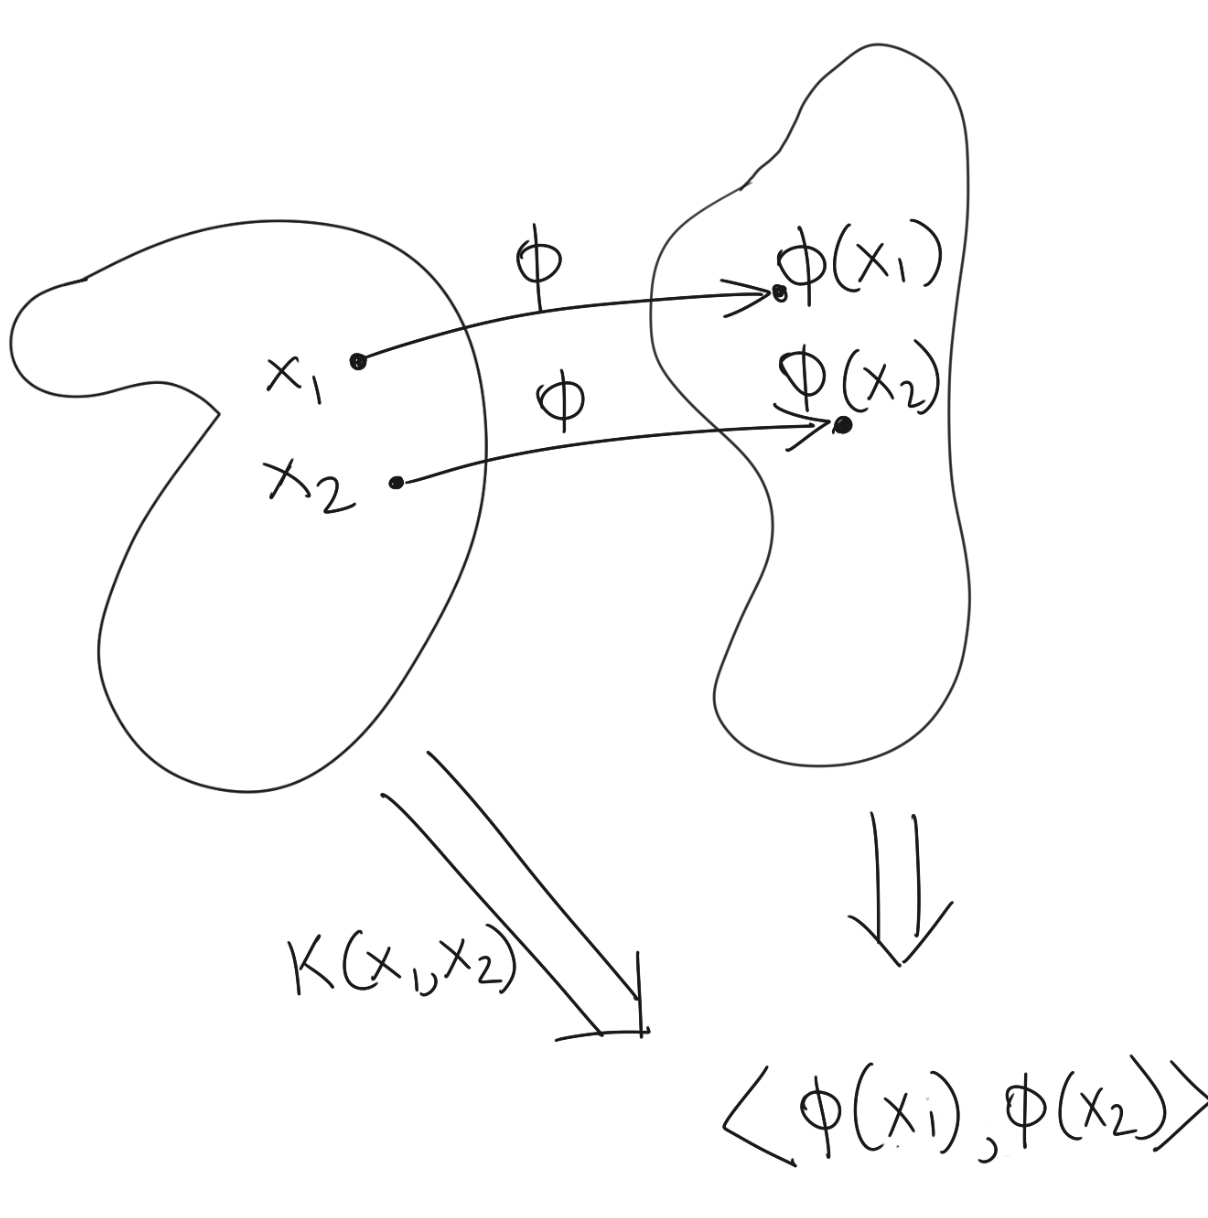 ϕ
ϕ(x₁)
x₁
ϕ
ϕ(x₂)
x₂
K(x₁,x₂)
<ϕ(x₁),ϕ(x₂)>